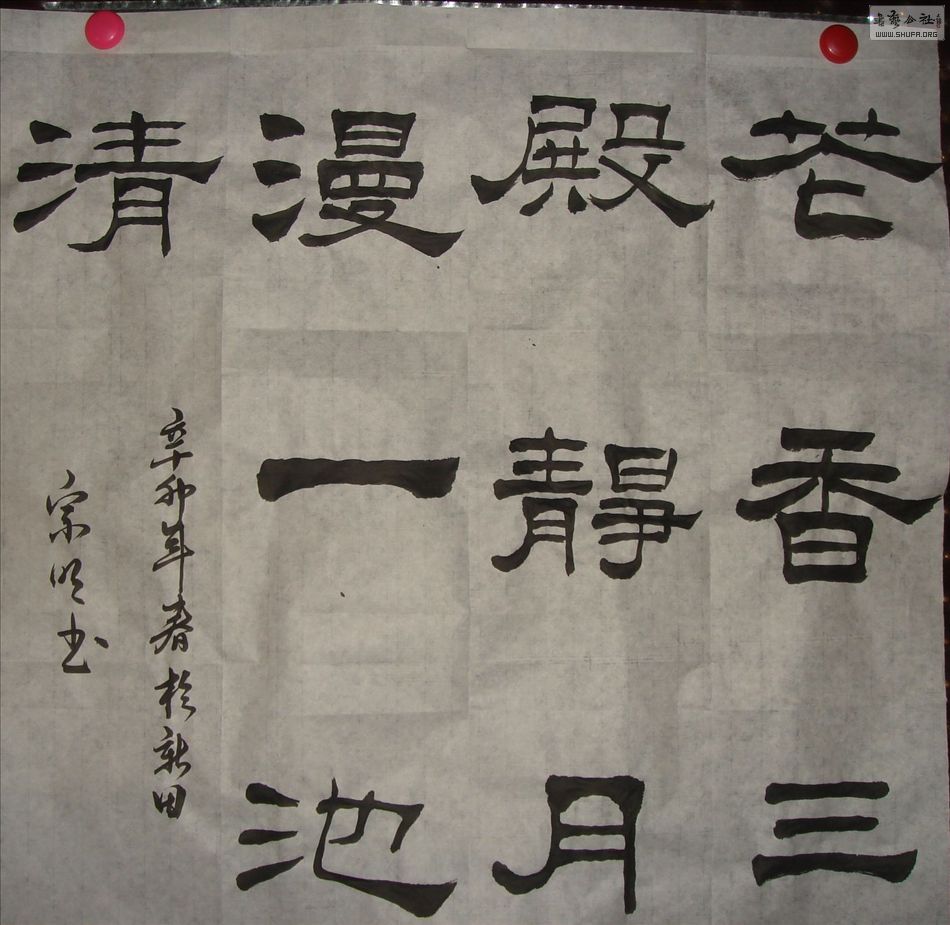 花香三
殿靜月
漫一池
清
辛卯年春於新田
宗明书
书艺公社
WWW.SHUFA.ORG